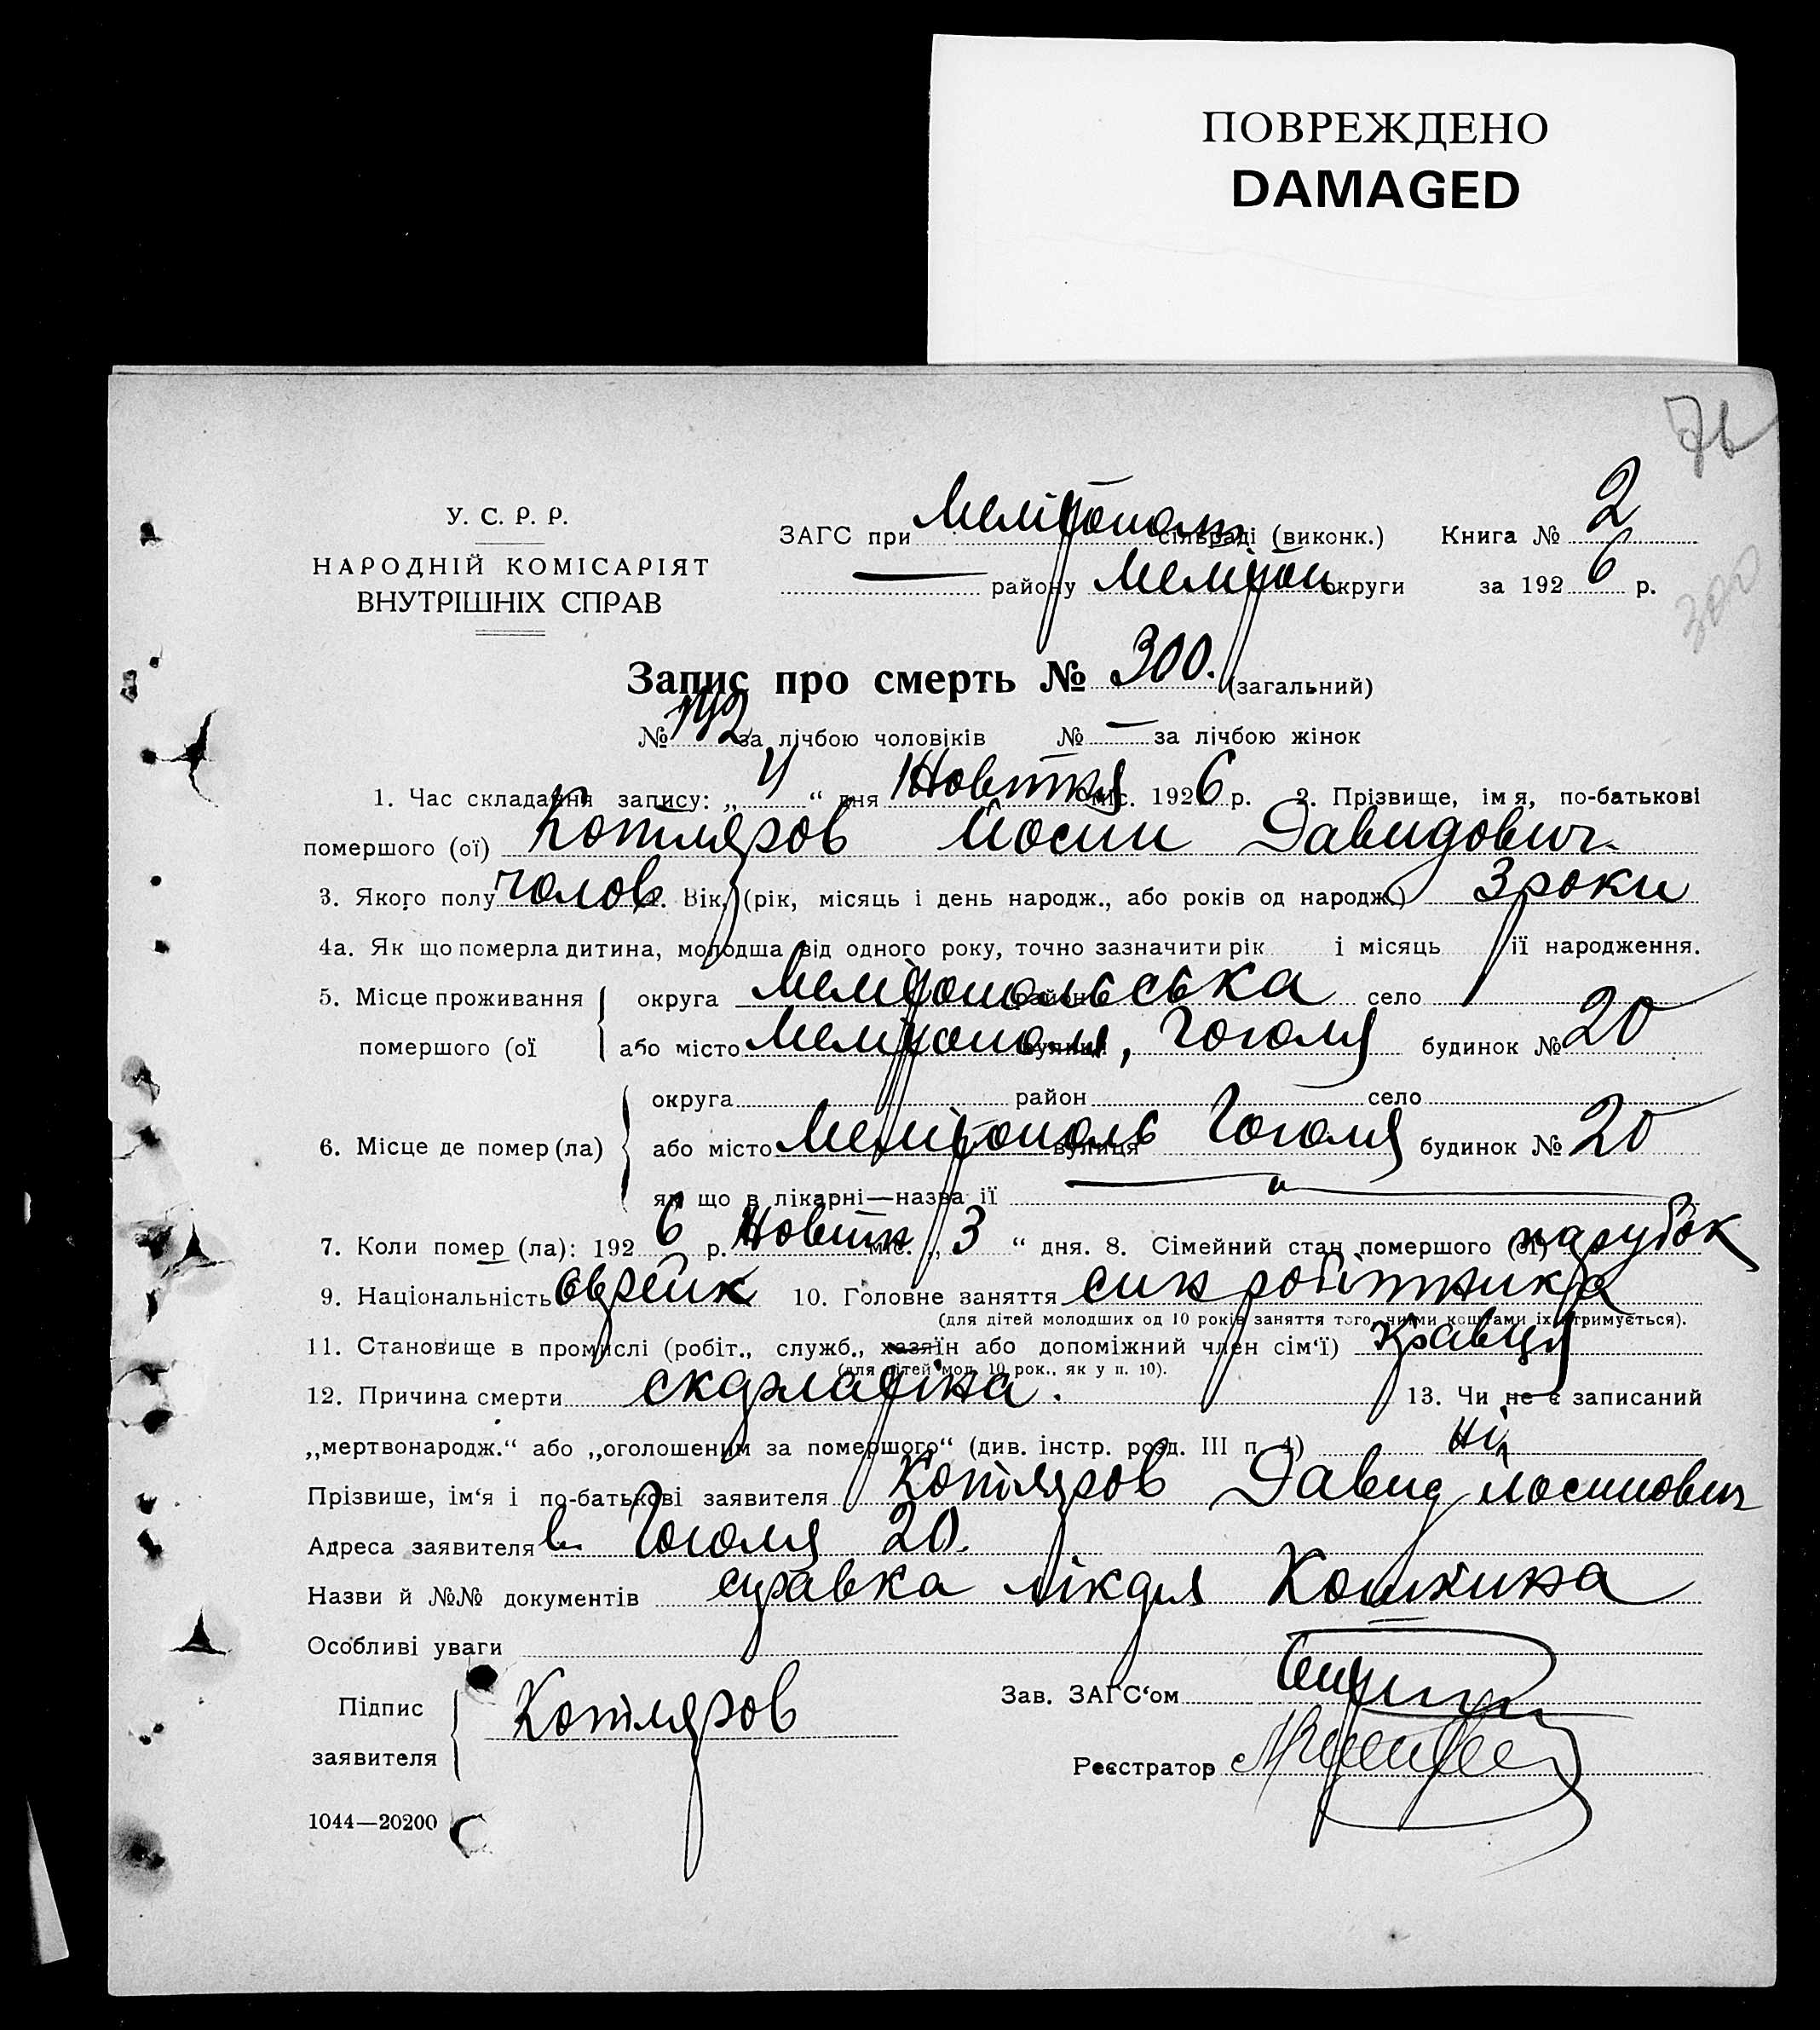 ПОВРЕЖДЕНО
DAMAGED
76
У. С. Р. Р.
НАРОДНІЙ КОМІСАРІЯТ
ВНУТРІШНІХ СПРАВ
ЗАГС при Мелітополь сільраді (виконк.) Книга № 2
— району Мелітоп округи за 1926 р.
300
Запис про смерть № 300. (загальний)
№ 142 за лічбою чоловіків № — за лічбою жінок
1. Час складання запису: „ 4 “ дня Жовтня міс. 1926 р. 2. Прізвище, імя, по-батькові
помершого (ої) Котляров Йосип Давидович
3. Якого полу чолов. Вік, (рік, місяць і день народж., або років од народж.) 3 роки
4а. Як що померла дитина, молодша від одного року, точно зазначити рік і місяць її народження.
5. Місце проживання помершого (ої { округа Мелітопольська район село
або місто Мелітополь, вулиця Гоголя будинок № 20
6. Місце де помер (ла) { округа район село
або місто Мелітополь вулиця Гоголя будинок № 20
як що в лікарні—назва її —
7. Коли помер (ла): 1926 р. Жовтн міс. „ 3 “ дня. 8. Сімейний стан помершого (ої) парубок
9. Національність єврейк 10. Головне заняття син робітника
(для дітей молодших од 10 років заняття того, чиїми коштами їх утримується).
11. Становище в промислі (робіт., служб., хазяїн або допоміжний член сім‘ї) кравця
(для дітей мол. 10 рок., як у п. 10).
12. Причина смерти скарлатіна. 13. Чи не є записаний
„мертвонародж.“ або „оголошеним за помершого“ (див. інстр. розд. III п. 4) ні
Прізвише, ім‘я і по-батькові заявителя Котляров Давид Йосипович
Адреса заявителя в. Гоголя 20.
Назви й №№ документів справка лікаря
Особливі уваги
Підпис заявителя { Котляров
Зав. ЗАГС‘ом
Реєстратор
1044—20200